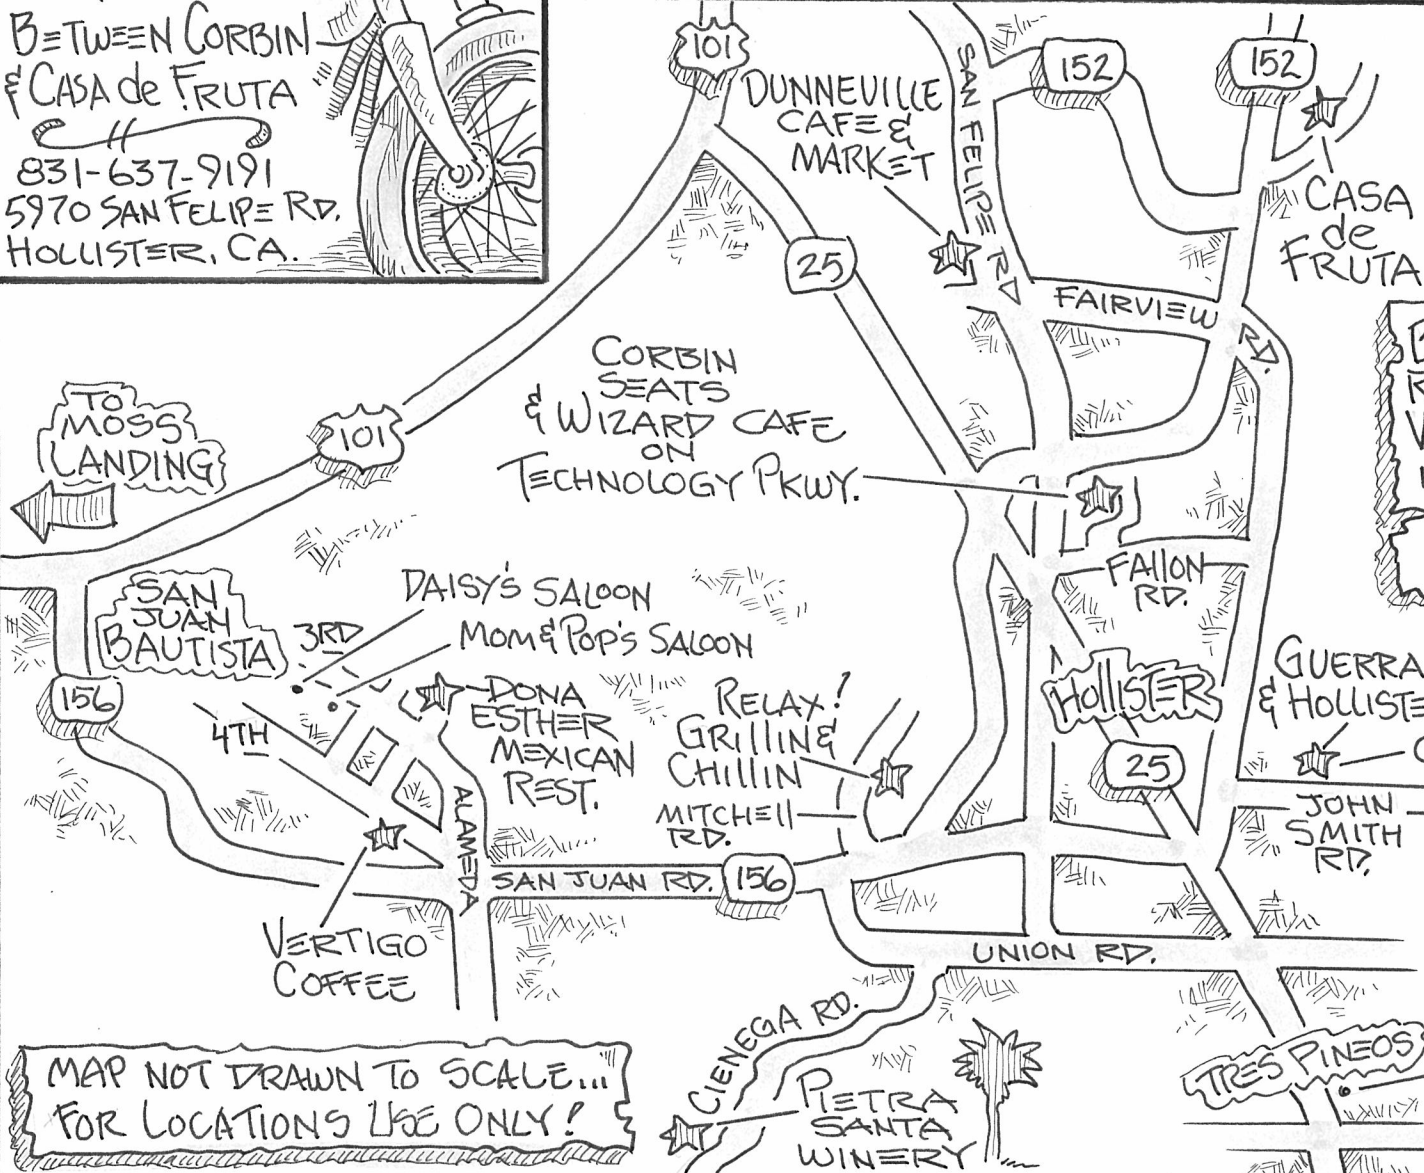 BETWEEN CORBIN
& CASA de FRUTA
831-637-9191
5970 SAN FELIPE RD.
HOLLISTER, CA.
101
DUNNEVILLE
CAFE &
MARKET
SAN FELIPE RD
152
152
CASA
de
FRUTA
25
FAIRVIEW RD.
CORBIN
SEATS
& WIZARD CAFE
ON
TECHNOLOGY PKWY.
TO
MOSS
LANDING
101
FALLON
RD.
SAN
JUAN
BAUTISTA
3RD
DAISY'S SALOON
MOM & POP'S SALOON
156
4TH
DONA
ESTHER
MEXICAN
REST.
RELAX!
GRILLIN &
CHILLIN
MITCHELL
RD.
HOLLISTER
25
GUERRA
& HOLLISTE
JOHN
SMITH
RD.
ALAMEDA
SAN JUAN RD.
156
VERTIGO
COFFEE
UNION RD.
CIENEGA RD.
PIETRA
SANTA
WINERY
TRES PINEOS
MAP NOT DRAWN TO SCALE...
FOR LOCATIONS USE ONLY!